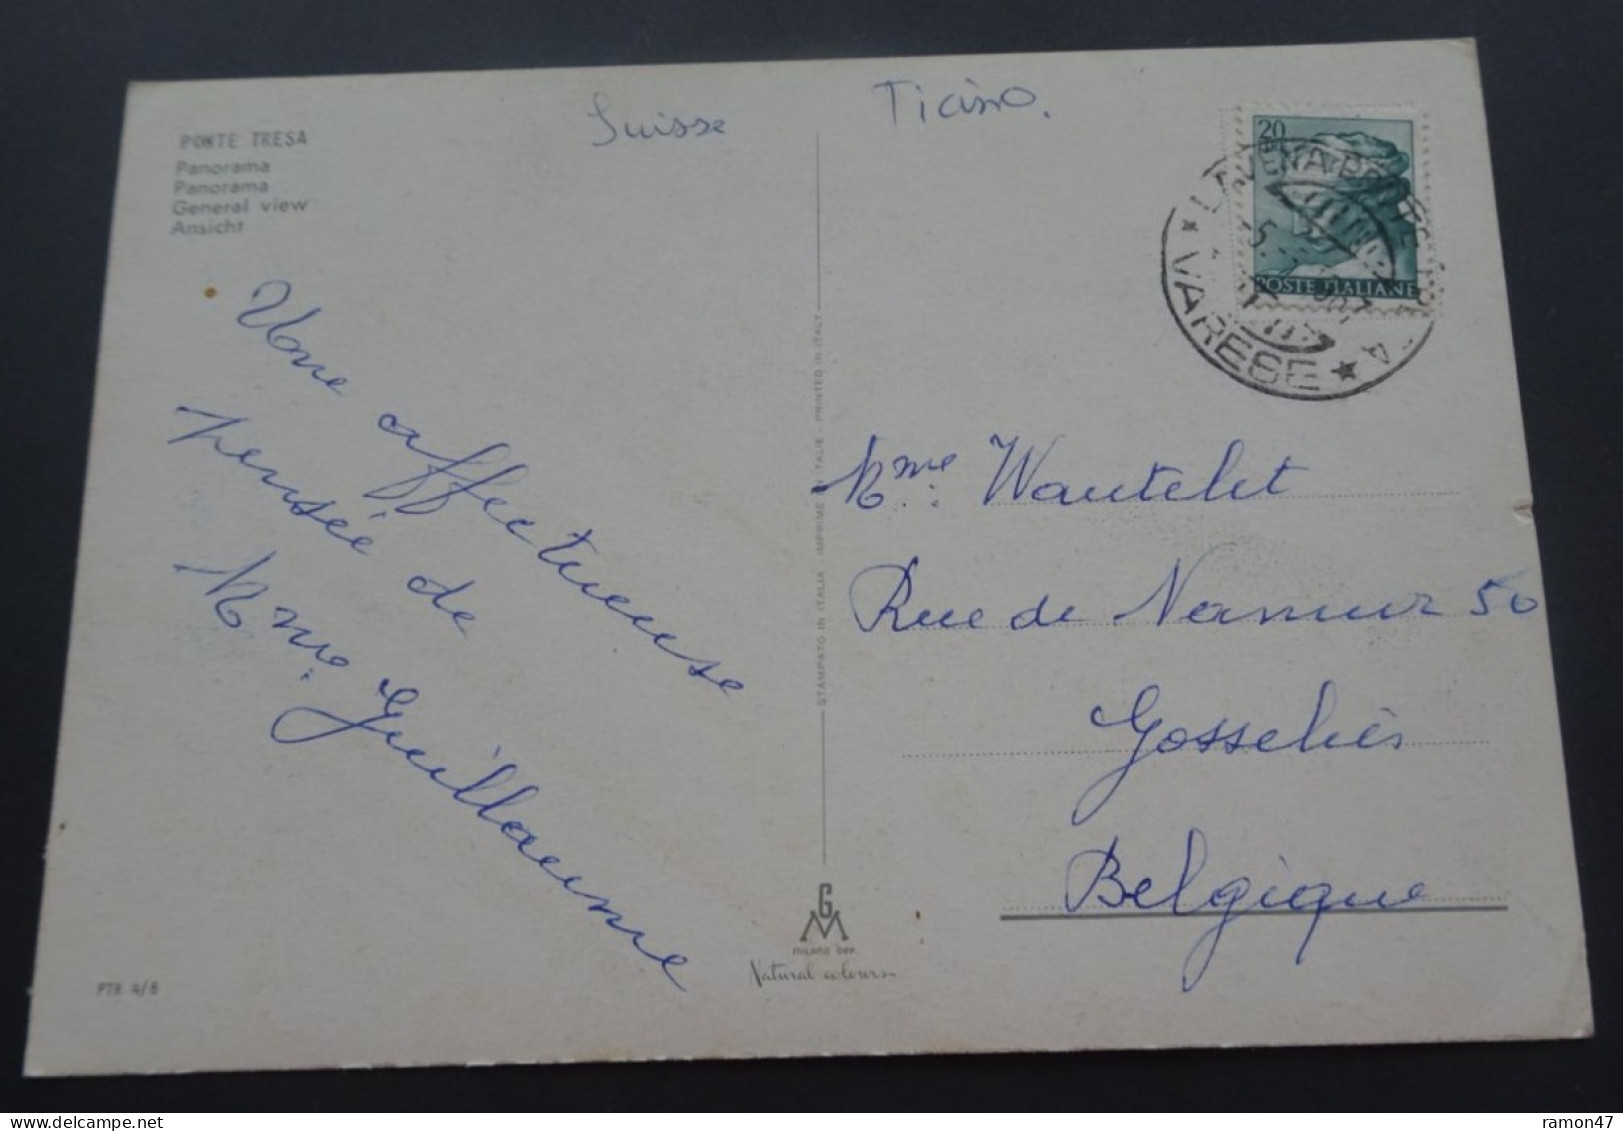 PONTE TRESA
Panorama
Panorama
General view
Ansicht
Suisse
Ticino.
20
POSTE ITALIANE
VARESE
Une affectueuse
pensée de
Mme. Guillaume
STAMPATO IN ITALIA - IMPRIME EN ITALIE - PRINTED IN ITALY
Mme. Wautelet
Rue de Namur 50
Gosselies
Belgique
GM
MILANO DEP.
Natural colours
PTR 4/8
ramon47